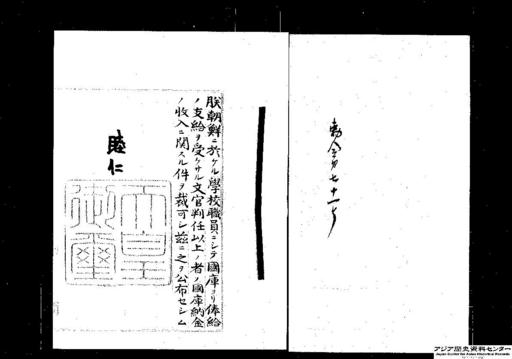 勅令第七十一号
朕朝鮮ニ於ケル學校職員ニシテ國庫ヨリ俸給
ノ支給ヲ受ケサル文官判任以上ノ者ノ國庫納金
ノ收入ニ関スル件ヲ裁可シ茲ニ之ヲ公布セシム
睦仁
天皇御璽
アジア歴史資料センター
Japan Center for Asian Historical Records